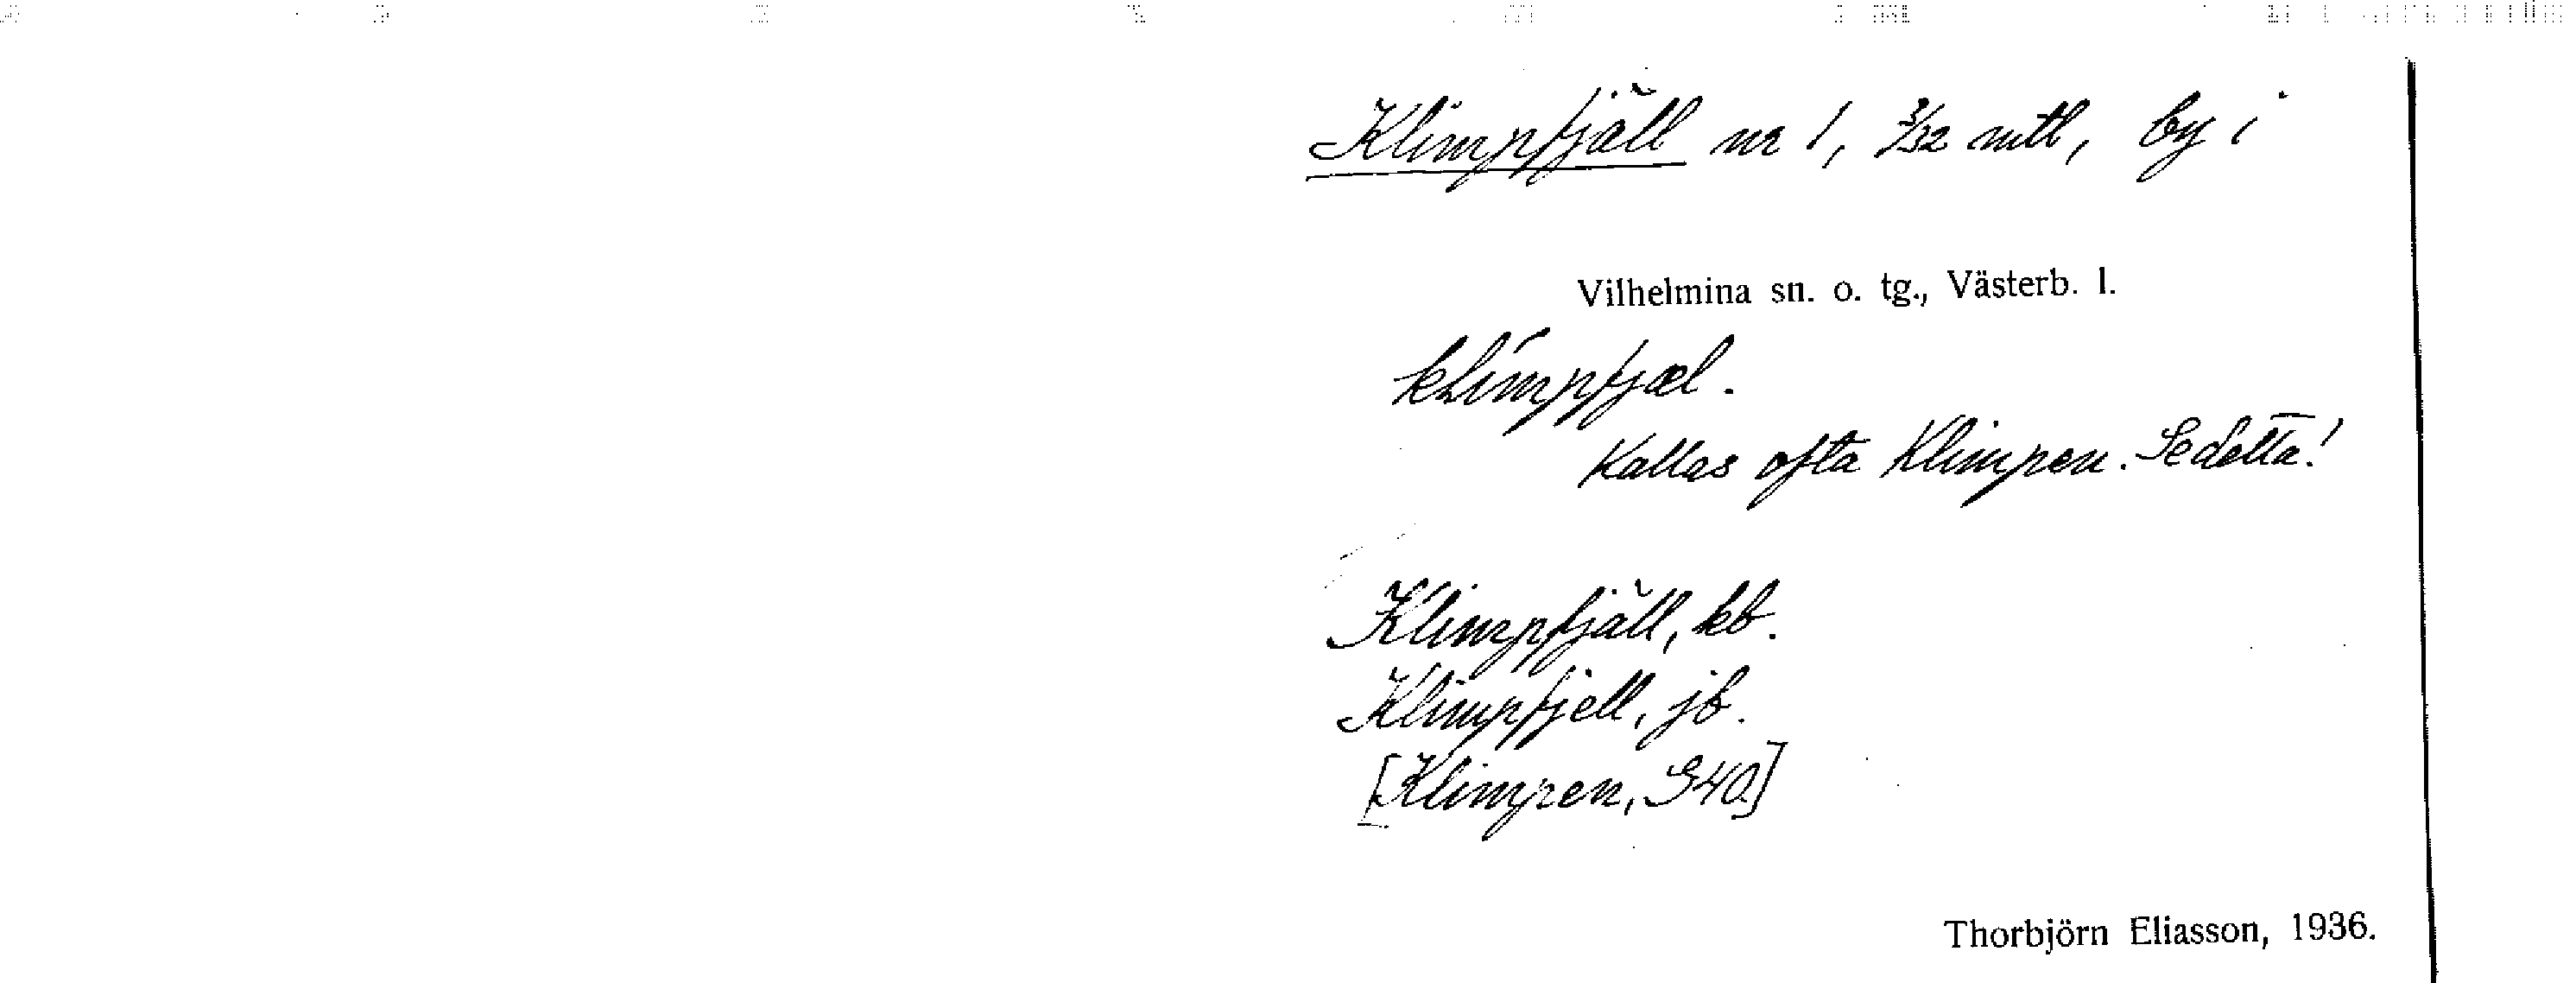 Klimpfjäll nr 1, 3/32 mtl, by i
Vilhelmina sn. o. tg., Västerb. l.
klimpfjæl.
Kallas ofta Klimpen. Se detta!
Klimpfjäll, kb.
Klimpfjell, jb.
[Klimpen, G40]
Thorbjörn Eliasson, 1936.